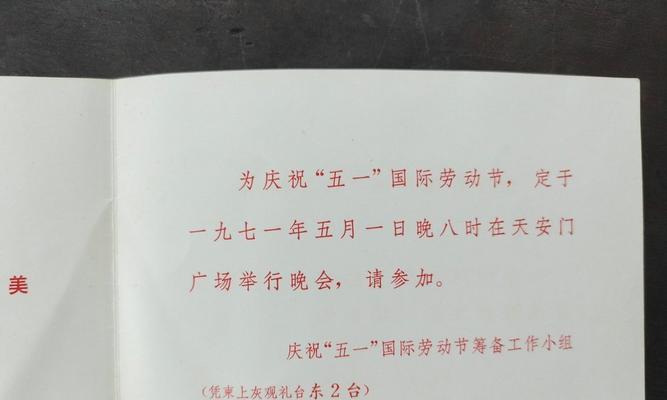 为庆祝“五一”国际劳动节，定于
一九七一年五月一日晚八时在天安门
广场举行晚会，请参加。
美
庆祝“五一”国际劳动节筹备工作小组
（凭柬上灰观礼台东2台）